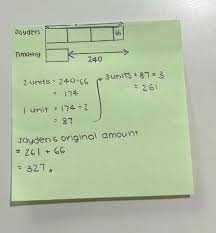 Jayden
66
Timothy
240
2 units = 240-66
= 174
1 unit = 174÷2
= 87
3 units = 87 × 3
= 261
Jayden's original amount
= 261 + 66
= 327.